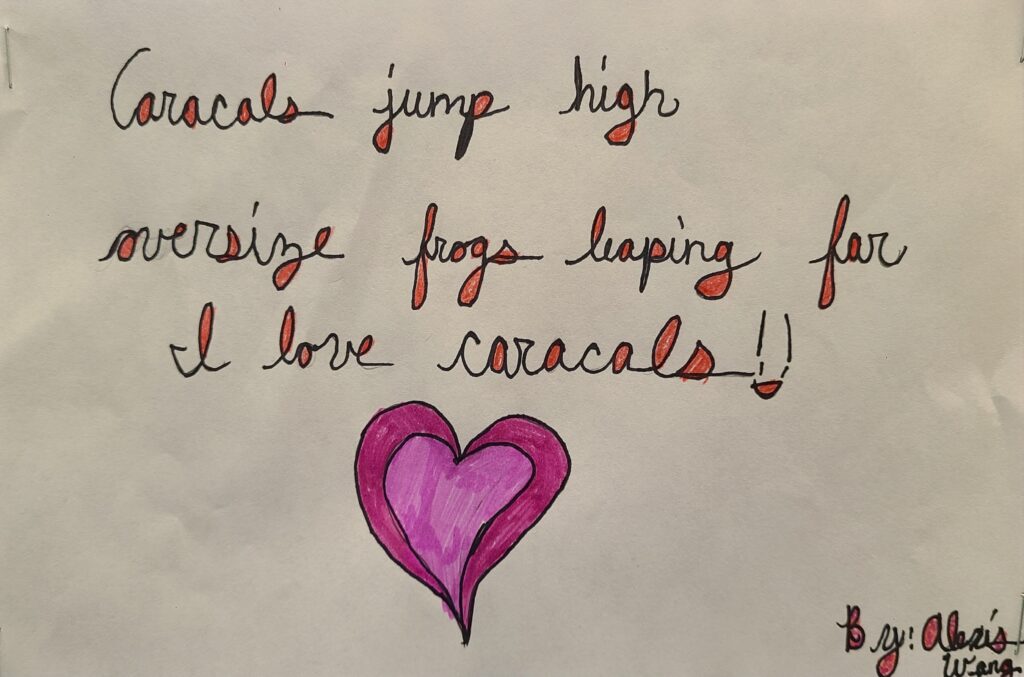 Caracals jump high
oversize frogs leaping far
I love caracals!!
By: Alexis
Wang